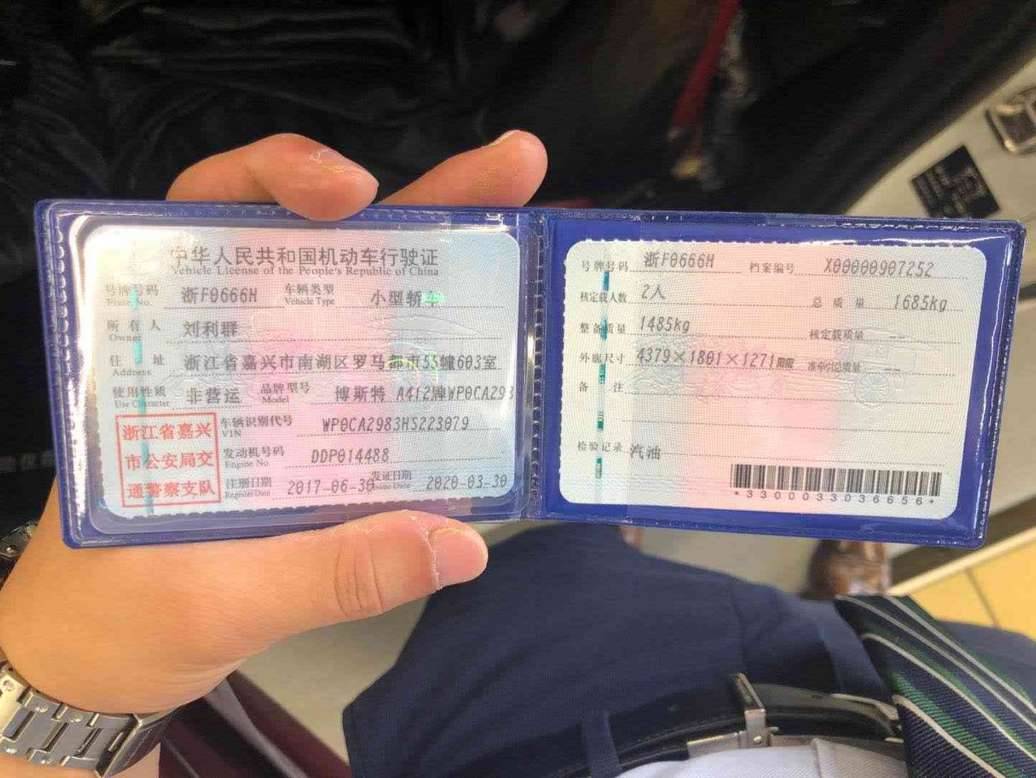 中华人民共和国机动车行驶证
Vehicle License of the People's Republic of China
号牌号码 浙F0666M 车辆类型 小型轿车
Plate No. Vehicle Type
所有人 刘利群
Owner
住址 浙江省嘉兴市南湖区罗马都市55幢603室
Address
使用性质 非营运 品牌型号 博斯特 A412牌WP0CA298
Use Character Model
浙江省嘉兴
市公安局交
通警察支队
车辆识别代号 WP0CA2983HS223079
VIN
发动机号码 DDP014488
Engine No.
注册日期 2017-06-30 发证日期 2020-03-30
Register Date Issue Date
号牌号码 浙F0666M 档案编号 X00000907252
核定载人数 2人 总质量 1685kg
整备质量 1485kg 核定载质量 --
外廓尺寸 4379×1801×1271 准牵引总质量 --
备注
检验记录 汽油
*3300033036656*